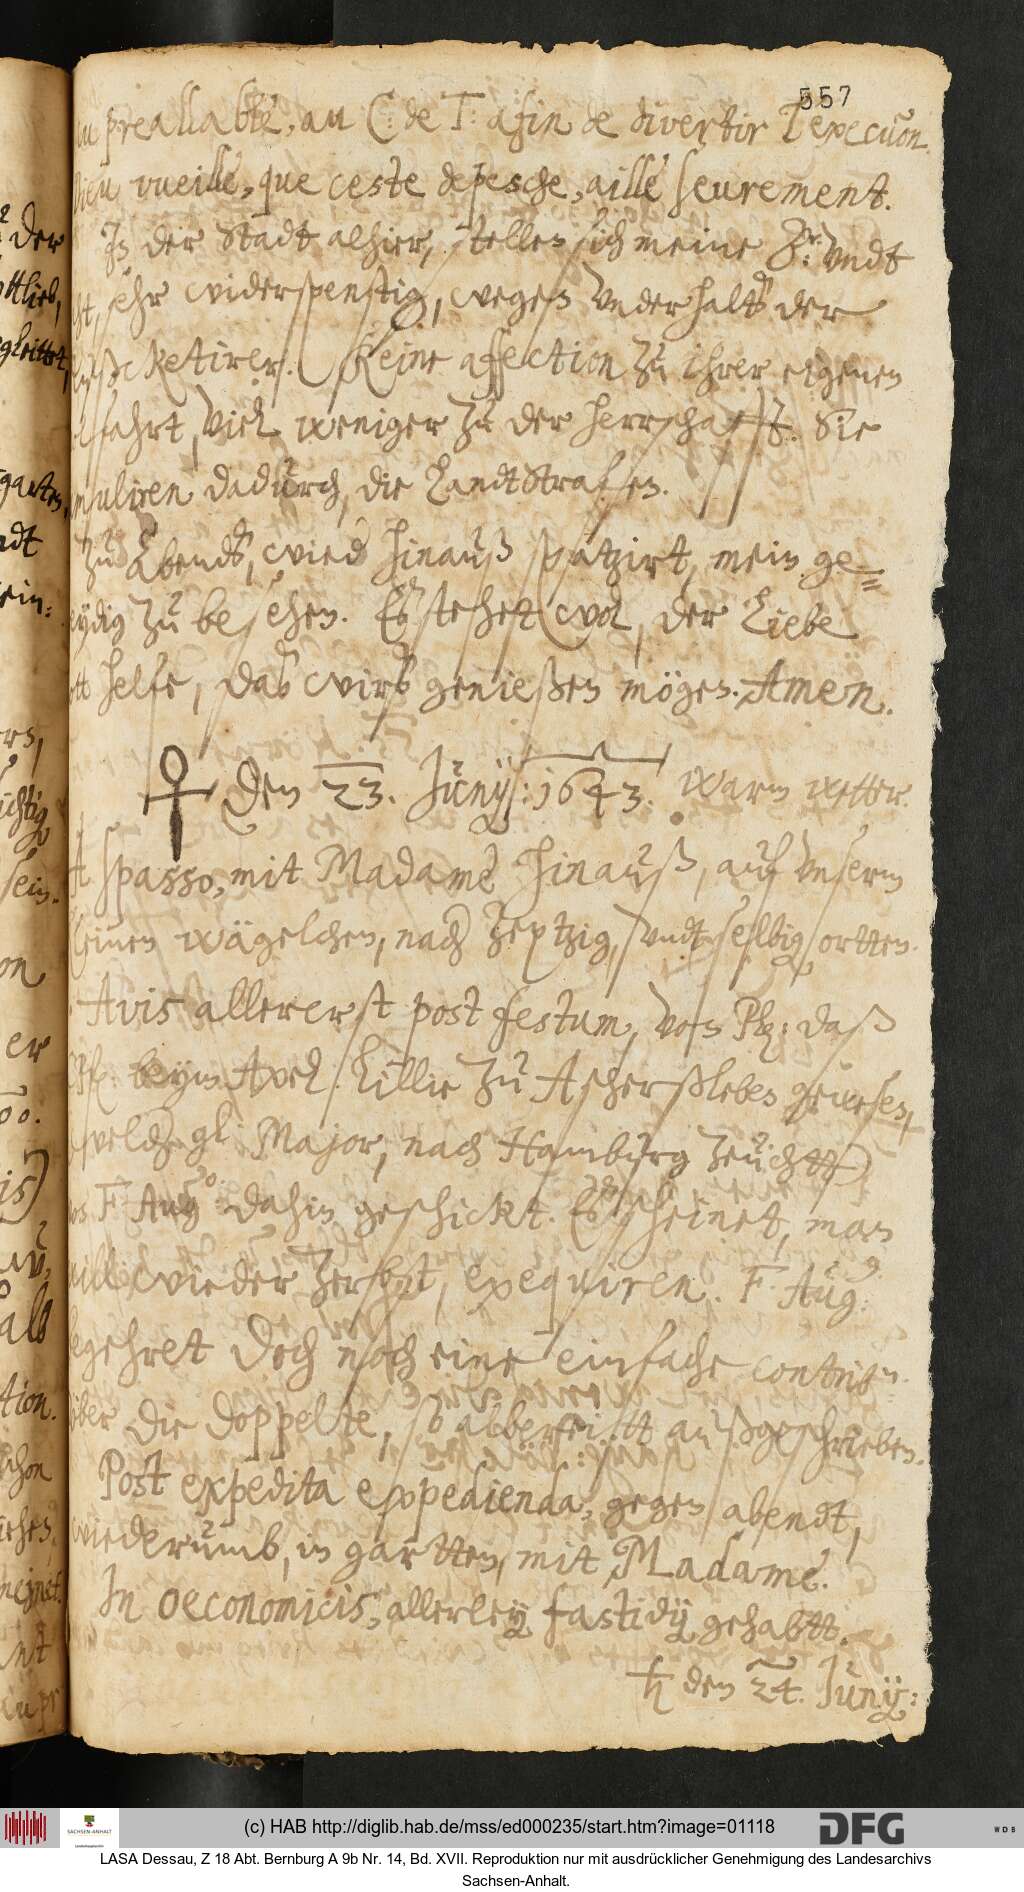 557
au preallable, au C: de T: afin de divertir l'execution.
Dieu vueille, que ceste depesche, aille seurement.
In der Stadt alhier, stellen sich meine H: vndt
sehr widerspenstig, wegen vnderhalts der
Mußcketirer. Keine affection zu ihrer eigenen
wolfahrt, viel weniger zu der herrschafft. Sie
ansuliren dadurch, die LandtStrafen.
Zu Abendts, wied hinauß spatzirt, mein ge=
treydig zu besehen. Es stehet wol, der Liebe
Gott helfe, das wirs genießen mögen. Amen.
♀ den 23. Junij: 1643. warm wetter.
A spasso, mit Madame hinauß, auf vnserm
kleinen wägelchen, nach Zeptzig, vndt selbig ortten.
Avis allererst post festum, vom Plz: daß
Pf: beym Axel Lillie zu Aschersleben gewesen,
welcher gl. Major, nach Hamburg zeuchtt)
F. Aug9 dahin geschickt. Es scheinet, man
will wieder Zerbst, exequiren. F. Aug9:
begehret doch noch eine einfache contrib:n:
über die doppelte, so albereitt außgeschrieben.
Post expedita expedienda, gegen abendt,
wiederumb, in gartten, mit Madame.
In oeconomicis, allerley fastidij gehabtt.
♄ den 24. Junij:
(c) HAB http://diglib.hab.de/mss/ed000235/start.htm?image=01118
SACHSEN-ANHALT
DFG
WDB
LASA Dessau, Z 18 Abt. Bernburg A 9b Nr. 14, Bd. XVII. Reproduktion nur mit ausdrücklicher Genehmigung des Landesarchivs
Sachsen-Anhalt.